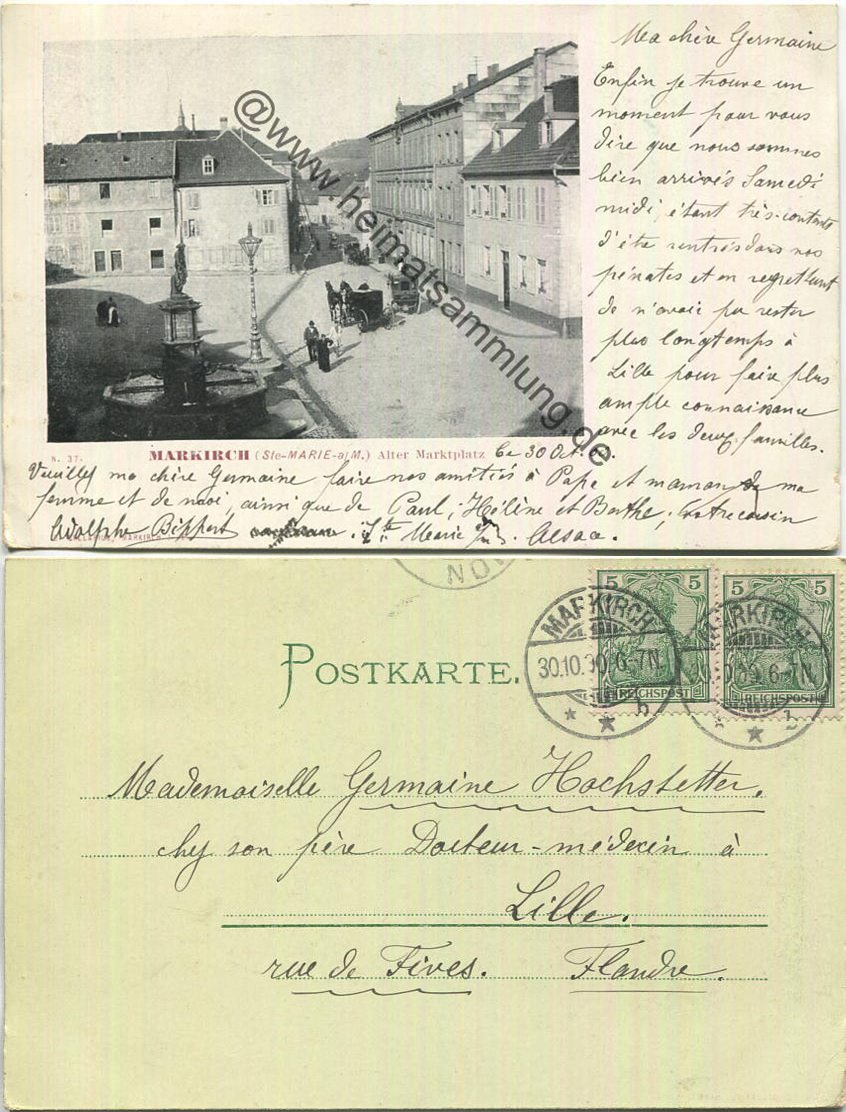 Ma chère Germaine
Enfin je trouve un
moment pour vous
dire que nous sommes
bien arrivés Samedi
midi, étant très-contents
d'être rentrés dans nos
pénates et en regrettant
de n'avoir pu rester
plus longtemps à
Lille pour faire plus
ample connaissance
avec les deux familles.
@www.heimatsammlung.de
N. 37. MARKIRCH (Ste-MARIE-a/M.) Alter Marktplatz Ce 30 Oct.
Veuillez ma chère Germaine faire nos amitiés à Papa et maman de ma
femme et de moi, ainsi que de Paul, Hélène et Berthe; Votre cousin
Adolphe Bippert Ste Marie Alsace.
NOV
POSTKARTE.
MARKIRCH
30.10.00.6-7N.
b
5 5
REICHSPOST
MARKIRCH
6-7N.
b
5 5
REICHSPOST
Mademoiselle Germaine Hochstetter.
chez son père Docteur-médecin à
Lille.
rue de Fives. Flandre.